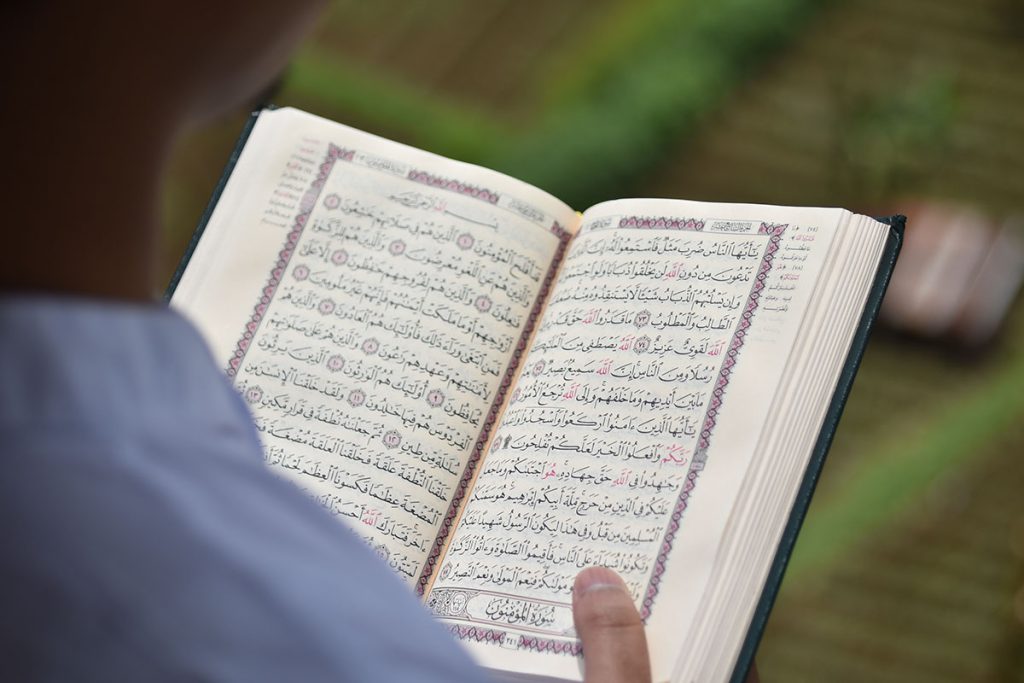 يَٰٓأَيُّهَا ٱلنَّاسُ ضُرِبَ مَثَلٌ فَٱسْتَمِعُوا۟ لَهُۥٓ إِنَّ
تَدْعُونَ مِن دُونِ ٱللَّهِ لَن يَخْلُقُوا۟ ذُبَابًا وَلَوِ ٱجْتَمَعُوا۟
وَإِن يَسْلُبْهُمُ ٱلذُّبَابُ شَيْـًٔا لَّا يَسْتَنقِذُوهُ مِنْهُ
ٱلطَّالِبُ وَٱلْمَطْلُوبُ ٧٣ مَا قَدَرُوا۟ ٱللَّهَ حَقَّ قَدْرِهِۦٓ
ٱللَّهَ لَقَوِىٌّ عَزِيزٌ ٧٤ ٱللَّهُ يَصْطَفِى مِنَ ٱلْمَلَٰٓئِكَةِ
رُسُلًا وَمِنَ ٱلنَّاسِ إِنَّ ٱللَّهَ سَمِيعٌۢ بَصِيرٌ ٧٥
مَا بَيْنَ أَيْدِيهِمْ وَمَا خَلْفَهُمْ وَإِلَى ٱللَّهِ تُرْجَعُ ٱلْأُمُورُ
يَٰٓأَيُّهَا ٱلَّذِينَ ءَامَنُوا۟ ٱرْكَعُوا۟ وَٱسْجُدُوا۟ وَٱعْبُدُوا۟
رَبَّكُمْ وَٱفْعَلُوا۟ ٱلْخَيْرَ لَعَلَّكُمْ تُفْلِحُونَ
وَجَٰهِدُوا۟ فِى ٱللَّهِ حَقَّ جِهَادِهِۦ هُوَ ٱجْتَبَىٰكُمْ وَمَا جَعَلَ
عَلَيْكُمْ فِى ٱلدِّينِ مِنْ حَرَجٍ مِّلَّةَ أَبِيكُمْ إِبْرَٰهِيمَ هُوَ سَمَّىٰكُمُ
ٱلْمُسْلِمِينَ مِن قَبْلُ وَفِى هَٰذَا لِيَكُونَ ٱلرَّسُولُ شَهِيدًا عَلَيْكُمْ
وَتَكُونُوا۟ شُهَدَآءَ عَلَى ٱلنَّاسِ فَأَقِيمُوا۟ ٱلصَّلَوٰةَ وَءَاتُوا۟ ٱلزَّكَوٰةَ
مَوْلَىٰكُمْ فَنِعْمَ ٱلْمَوْلَىٰ وَنِعْمَ ٱلنَّصِيرُ
سُورَةُ المُؤْمِنُونَ
٣٤١
أَفْلَحَ ٱلْمُؤْمِنُونَ ١ ٱلَّذِينَ هُمْ فِى صَلَاتِهِمْ خَٰشِعُونَ ٢
وَٱلَّذِينَ هُمْ عَنِ ٱللَّغْوِ مُعْرِضُونَ ٣ وَٱلَّذِينَ هُمْ لِلزَّكَوٰةِ
فَٰعِلُونَ ٤ وَٱلَّذِينَ هُمْ لِفُرُوجِهِمْ حَٰفِظُونَ ٥ إِلَّا عَلَىٰٓ
أَزْوَٰجِهِمْ أَوْ مَا مَلَكَتْ أَيْمَٰنُهُمْ فَإِنَّهُمْ غَيْرُ مَلُومِينَ ٦
ٱبْتَغَىٰ وَرَآءَ ذَٰلِكَ فَأُو۟لَٰٓئِكَ هُمُ ٱلْعَادُونَ ٧ وَٱلَّذِينَ هُمْ
لِأَمَٰنَٰتِهِمْ وَعَهْدِهِمْ رَٰعُونَ ٨ وَٱلَّذِينَ هُمْ عَلَىٰ صَلَوَٰتِهِمْ
يُحَافِظُونَ ٩ أُو۟لَٰٓئِكَ هُمُ ٱلْوَٰرِثُونَ ١٠ ٱلَّذِينَ يَرِثُونَ
ٱلْفِرْدَوْسَ هُمْ فِيهَا خَٰلِدُونَ ١١ وَلَقَدْ خَلَقْنَا ٱلْإِنسَٰنَ مِن
سُلَٰلَةٍ مِّن طِينٍ ١٢ ثُمَّ جَعَلْنَٰهُ نُطْفَةً فِى قَرَارٍ مَّكِينٍ ١٣
خَلَقْنَا ٱلنُّطْفَةَ عَلَقَةً فَخَلَقْنَا ٱلْعَلَقَةَ مُضْغَةً
ٱلْمُضْغَةَ عِظَٰمًا فَكَسَوْنَا ٱلْعِظَٰمَ لَحْمًا
ءَاخَرَ فَتَبَارَكَ ٱللَّهُ أَحْسَنُ
لَمَيِّتُونَ